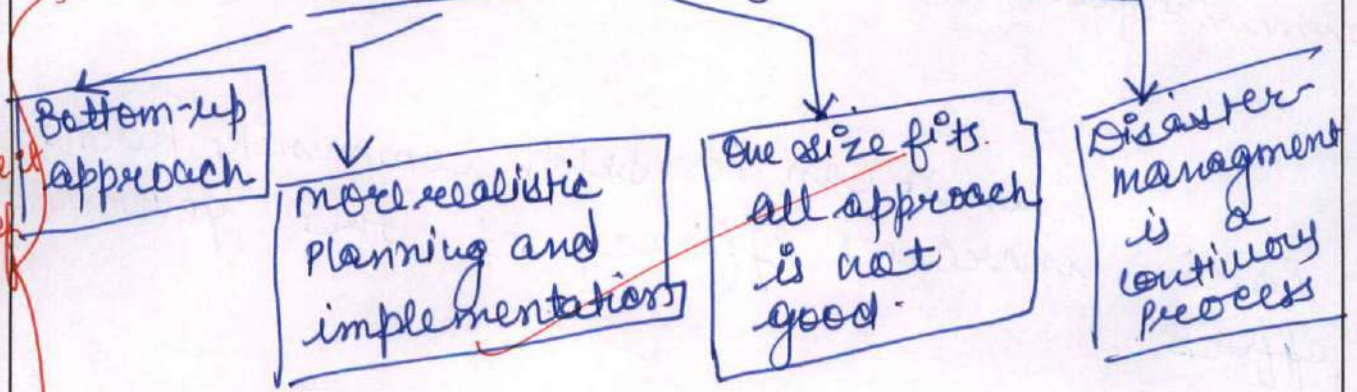 Bottom-up
approach
more realistic
planning and
implementation
One size fits
all approach
is not
good.
Disaster-
managment
is a
continuous
process